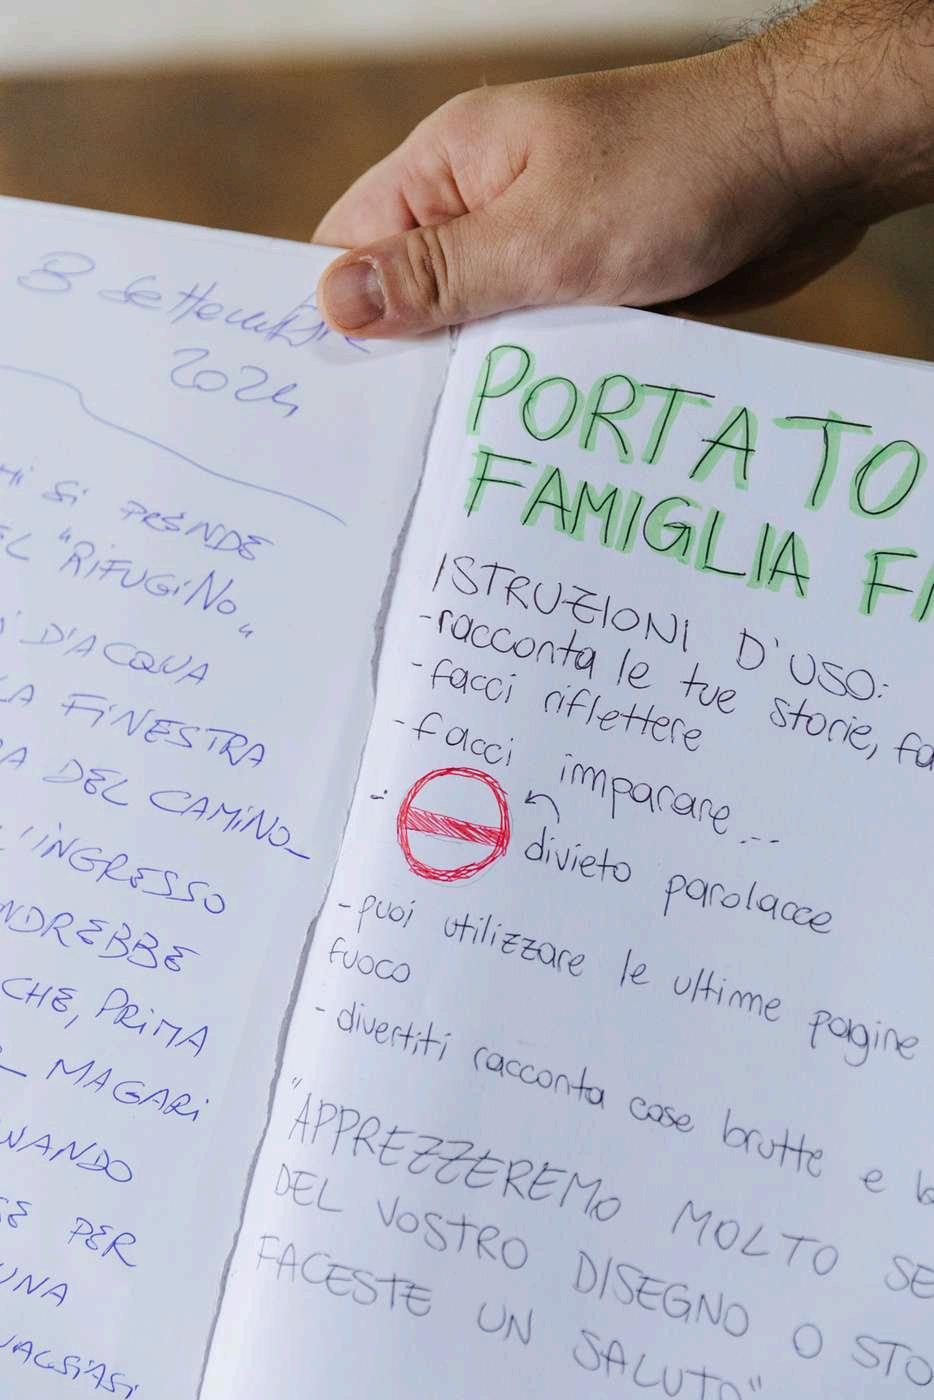 3 settembre
2024
SI PRENDE
"RIFUGINO"
D'ACQUA
LA FINESTRA
DEL CAMINO_
L'INGRESSO
ANDREBBE
CHE, PRIMA
MAGARI
PER
UNA
PORTATO
FAMIGLIA
ISTRUZIONI D'USO:
-racconta le tue storie,
-facci riflettere
-facci imparare...
- divieto parolacce
-puoi utilizzare le ultime pagine
fuoco
-divertiti racconta cose brutte e
"APPREZZEREMO MOLTO SE
DEL VOSTRO DISEGNO O
FACESTE UN SALUTO"